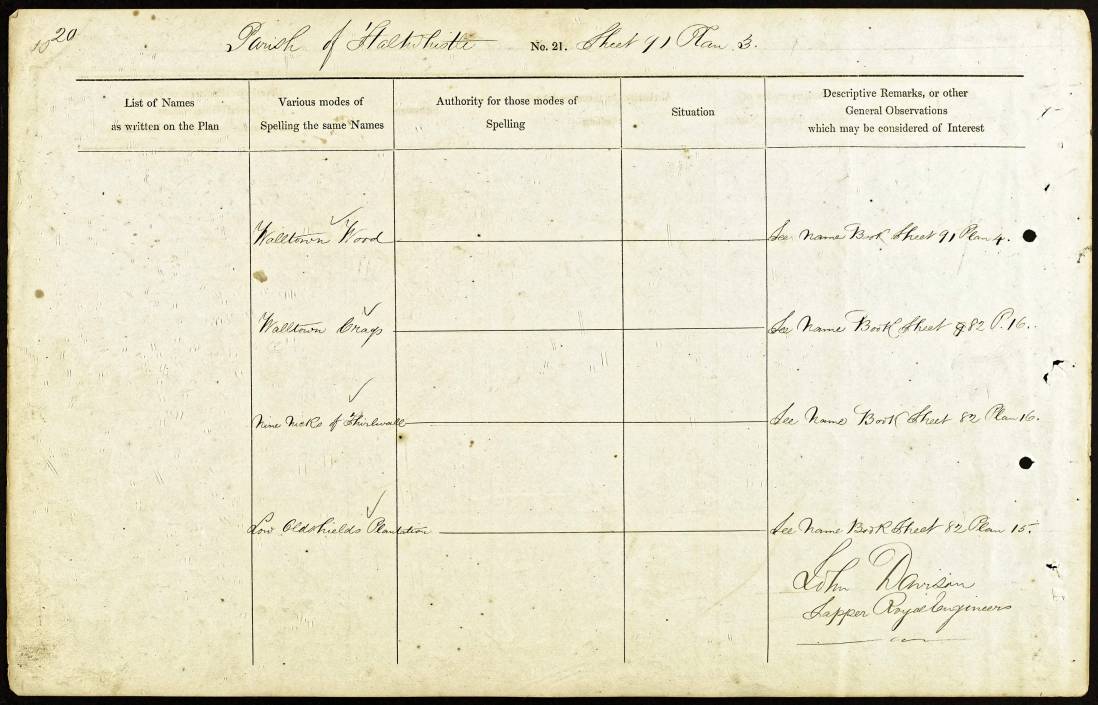 20
Parish of Haltwhistle No. 21. Sheet 91 Plan 3.
List of Names
as written on the Plan
Various modes of
Spelling the same Names
Authority for those modes of
Spelling
Situation
Descriptive Remarks, or other
General Observations
which may be considered of Interest
Walltown Wood See Name Book Sheet 91 Plan 4.
Walltown Crags See Name Book Sheet 82 P. 16.
Nine Nicks of Thirlwall See Name Book Sheet 82 Plan 16.
Low Oldshields Plantation See Name Book Sheet 82 Plan 15.
John Davison
Sapper Royal Engineers